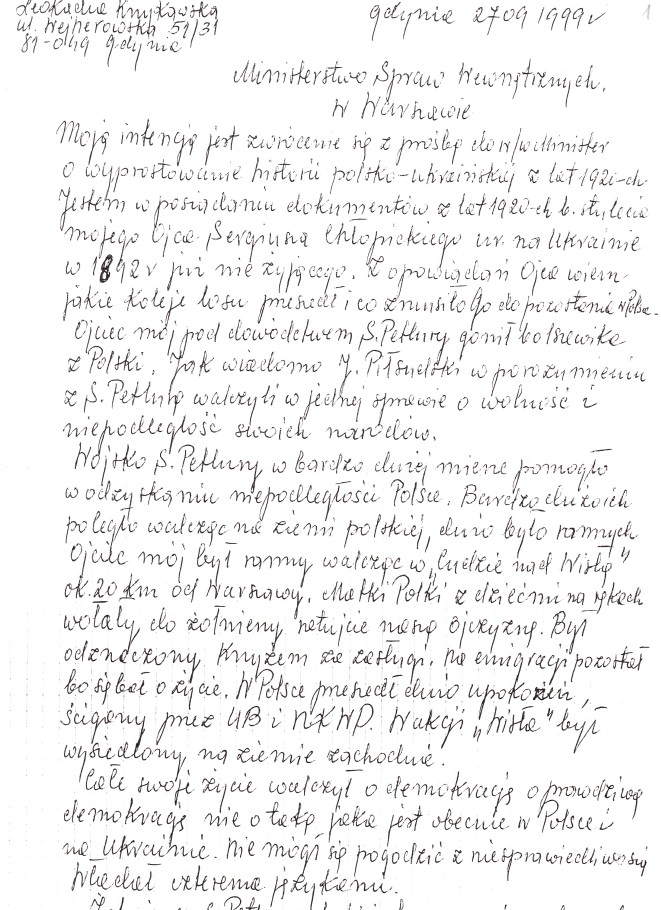 Leokadia Knykowska
ul. Wejherowska 51/31
81-049 Gdynia
Gdynia 27 09 1999r
1
Ministerstwo Spraw Wewnętrznych.
w Warszawie
Moją intencją jest zwrócenie się z prośbą do w/w Minister
o wyprostowanie historii polsko-ukraińskiej z lat 1920-ch
Jestem w posiadaniu dokumentów z lat 1920-ch b. stulecia
mojego Ojca Sergiusza Chłopickiego ur. na Ukrainie
w 1892r już nie żyjącego. Z opowiadań Ojca wiem
jakie koleje losu przeszedł i co zmusiło Go do pozostania w Polsce.
Ojciec mój pod dowództwem S. Petlury gonił bolszewika
z Polski. Jak wiadomo J. Piłsudski w porozumieniu
z S. Petlurą walczyli w jednej sprawie o wolność i
niepodległość swoich narodów.
Wojsko S. Petlury w bardzo dużej mierze pomogło
w odzyskaniu niepodległości Polsce. Bardzo dużo ich
poległo walcząc na ziemi polskiej, dużo było rannych
Ojciec mój był ranny walcząc w „Cudzie nad Wisłą"
ok. 20 km od Warszawy. Matki Polki z dziećmi na rękach
wołały do żołnierzy ratujcie naszą ojczyznę. Był
odznaczony Krzyżem za zasługi. Na emigracji pozostał
bo się bał o życie. W Polsce przeszedł dużo upokorzeń,
ścigany przez UB i NKWD. W akcji „Wisła" był
wysiedlony na ziemie zachodnie.
Całe swoje życie walczył o demokrację o prawdziwą
demokrację nie o taką jaka jest obecnie w Polsce i
na Ukrainie. Nie mógł się pogodzić z niesprawiedliwością
Władał czterema językami.